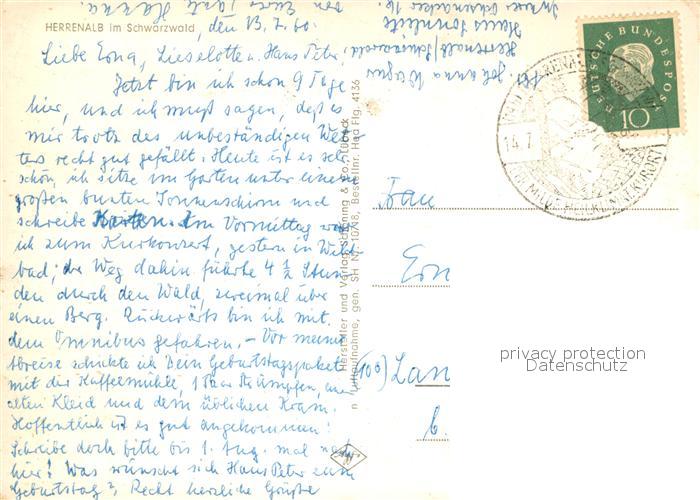 HERRENALB im Schwarzwald, den 13.7.60.
Liebe Erna, Lieselotte u. Hans Peter,
Jetzt bin ich schon 9 Tage
hier, und ich muß sagen, daß es
mir trotz des unbeständigen Wet-
ters recht gut gefällt. Heute ist es sehr
schön, ich sitze im Garten unter einem
großen bunten Sonnenschirm und
schreibe Karten. Im Vormittag war
ich zum Kurkonzert, gestern in Wild-
bad; der Weg dahin führte 4 1/2 Stun-
den durch den Wald, zweimal über
einen Berg. Rückwärts bin ich mit
dem Omnibus gefahren. – Vor meiner
Abreise schickte ich Dein Geburtstagspaket
mit der Kaffeemühle, 1 Paar Strümpfen,
alten Kleid und dem üblichen Kram.
Hoffentlich ist es gut angekommen!
Schreibe doch bitte bis 1. Aug. mal nach
hier! Was wünscht sich Hans Peter zum
Geburtstag? Recht herzliche Grüße
von Eurer Tante Herma.
Johanna Wagner
Herrenalb/Schwarzwald
Haus Sonnleite
Hersteller und Verlag Schöning & Co., Lübeck
Luftaufnahme, gen. SH Nr. 10/18, Bestellnr. Had Flg. 4136
DEUTSCHE BUNDESPOST
10
14.7
HEILKLIMA KURORT
Frau
Ern
Lan
privacy protection
Datenschutz